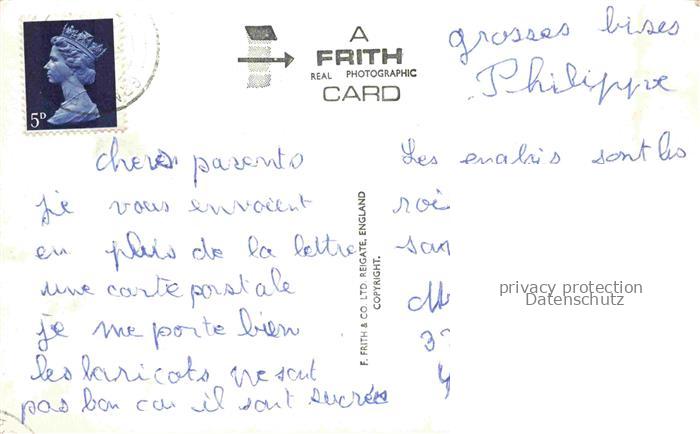 5D
A
FRITH
REAL PHOTOGRAPHIC
CARD
grosses bises
Philippe
chers parents
je vous envoient
en plus de la lettre
une carte postale
je me porte bien
les haricots ne sont
pas bon car il sont sucrées
Les
sont les
F. FRITH & CO. LTD. REIGATE, ENGLAND
COPYRIGHT.
privacy protection
Datenschutz